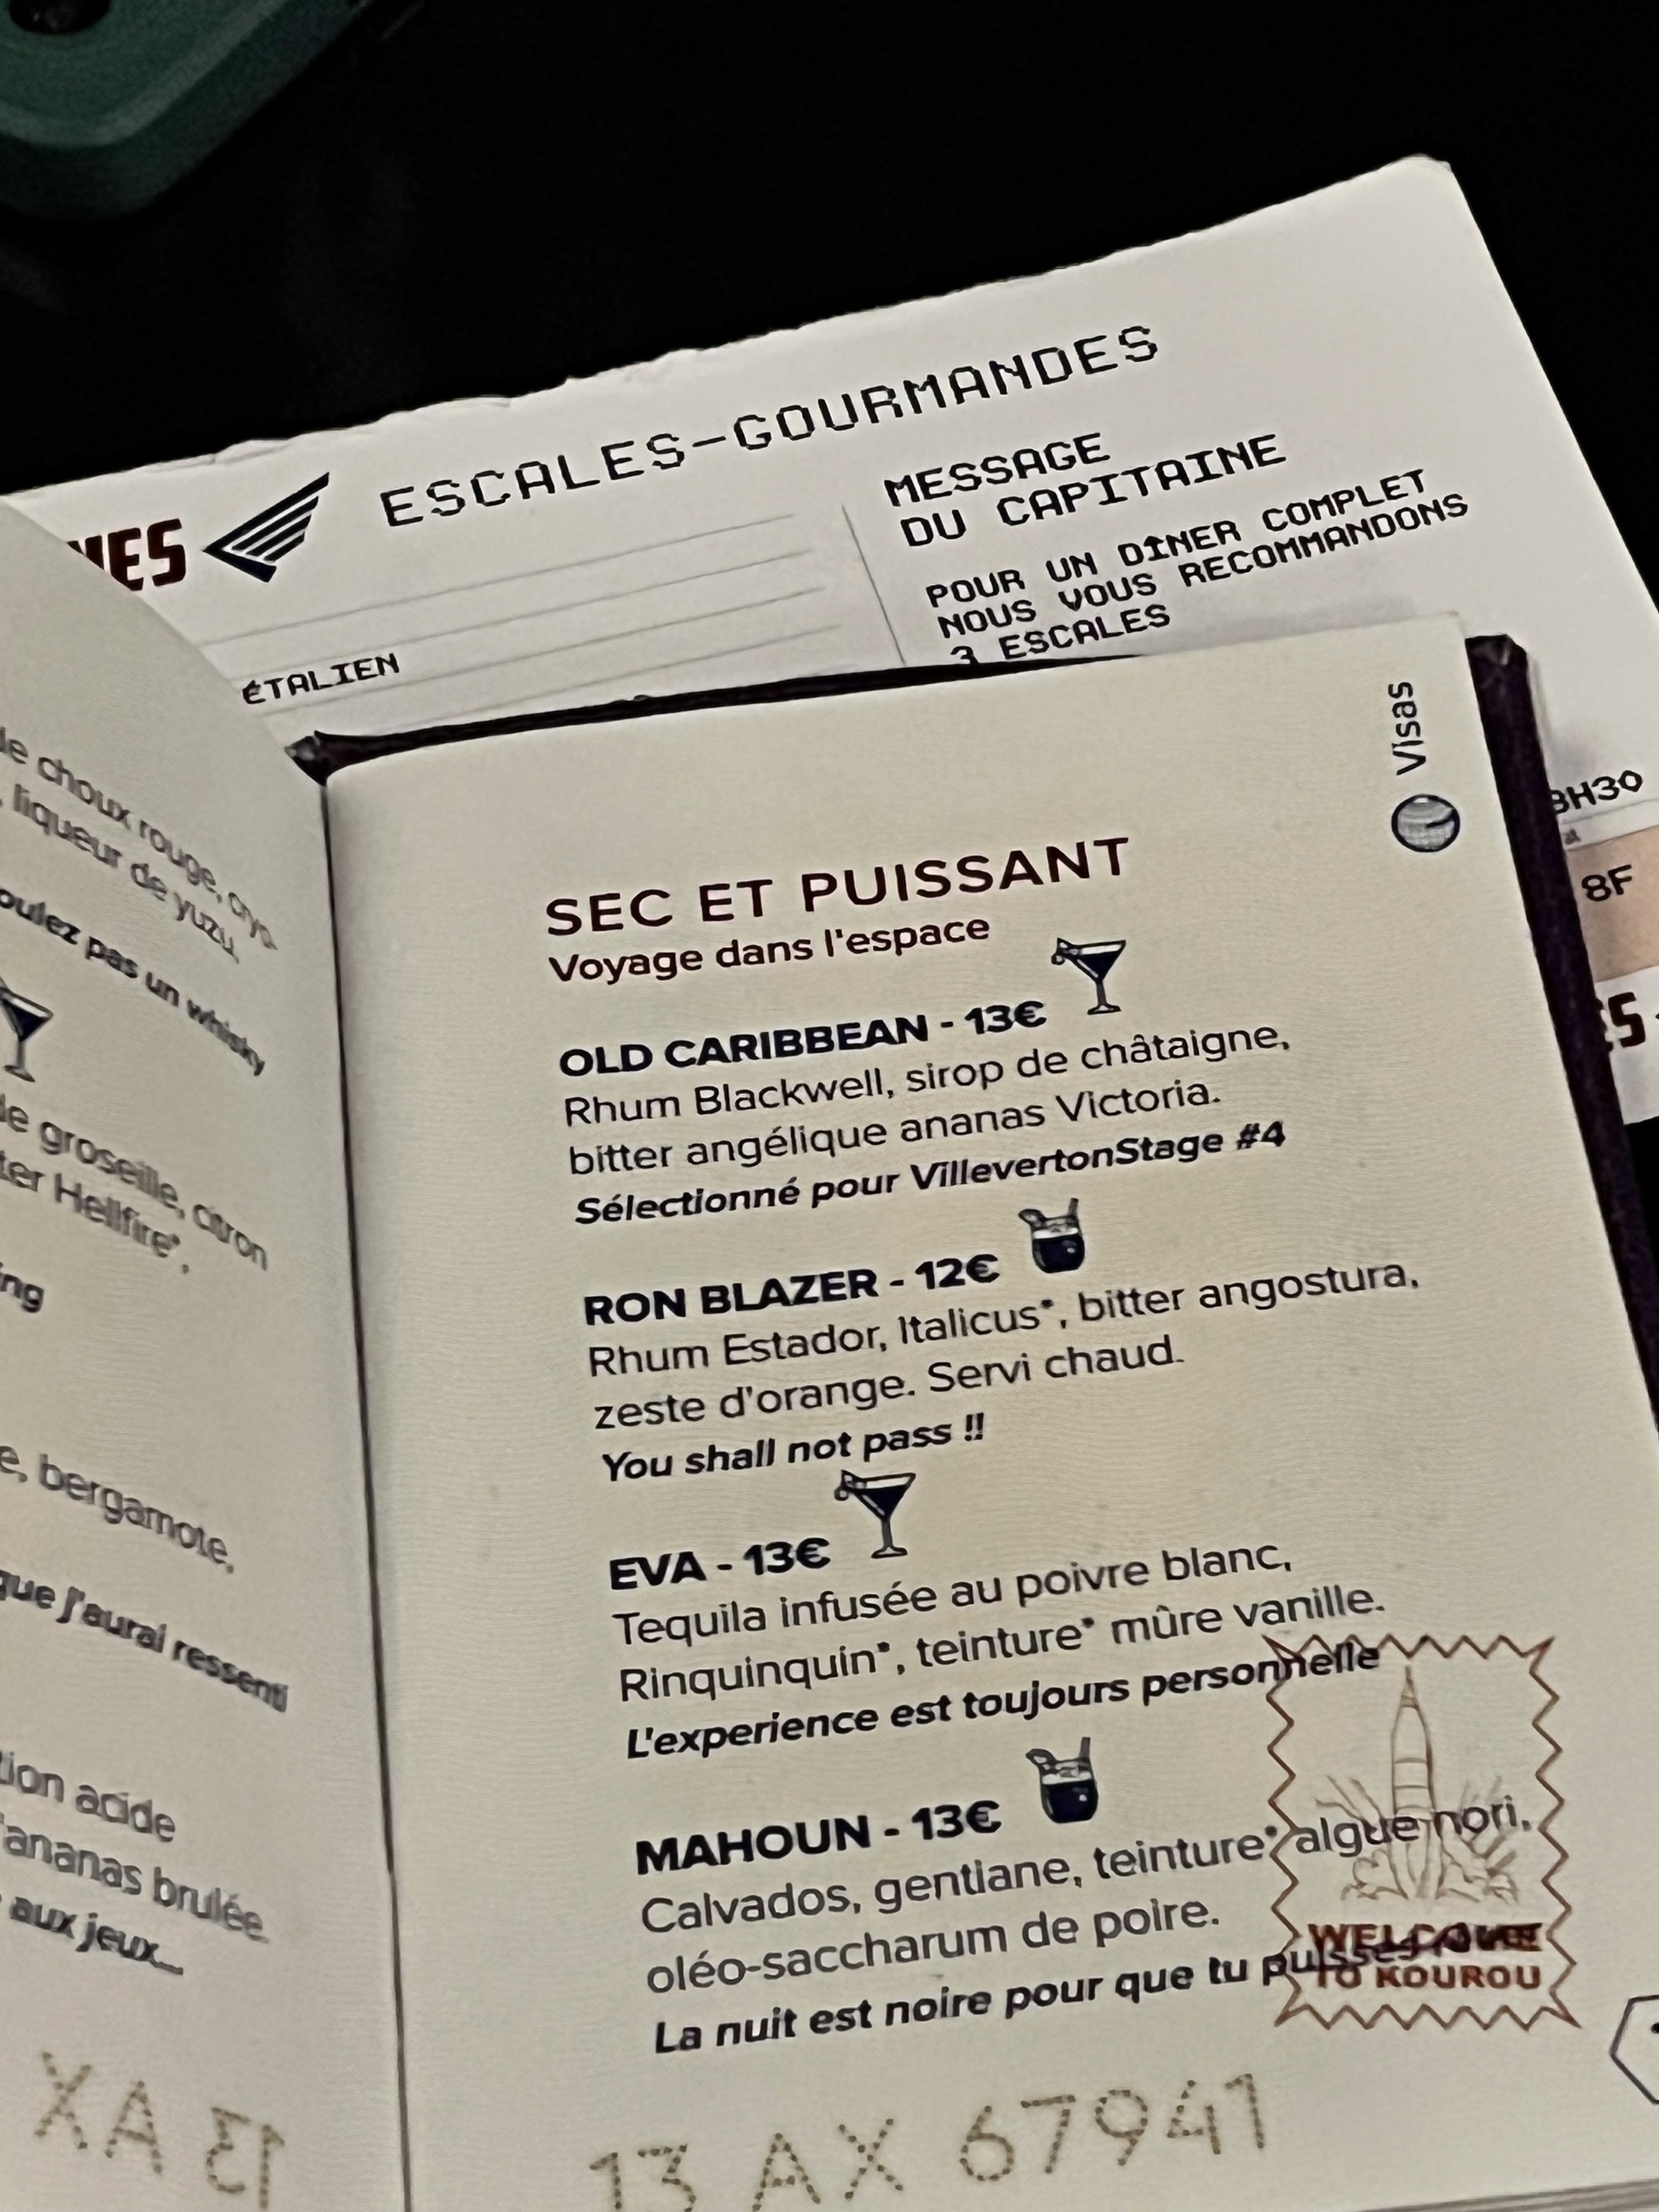 ESCALES-GOURMANDES
MESSAGE
DU CAPITAINE
POUR UN DÎNER COMPLET
NOUS VOUS RECOMMANDONS
3 ESCALES
ÉTALIEN
8F
de choux rouge, cryo-
liqueur de yuzu,
oulez pas un whisky
de groseille, citron
ter Hellfire*,
ing
e, bergamote,
que j'aurai ressenti
tion acide
'ananas brulée
aux jeux...
Visas
SEC ET PUISSANT
Voyage dans l'espace
OLD CARIBBEAN - 13€
Rhum Blackwell, sirop de châtaigne,
bitter angélique ananas Victoria.
Sélectionné pour VillevertonStage #4
RON BLAZER - 12€
Rhum Estador, Italicus*, bitter angostura,
zeste d'orange. Servi chaud.
You shall not pass !!
EVA - 13€
Tequila infusée au poivre blanc,
Rinquinquin*, teinture* mûre vanille.
L'experience est toujours personnelle
MAHOUN - 13€
Calvados, gentiane, teinture* algue nori,
oléo-saccharum de poire.
La nuit est noire pour que tu puisses
WELCOME
TO KOUROU
13 AX 67941